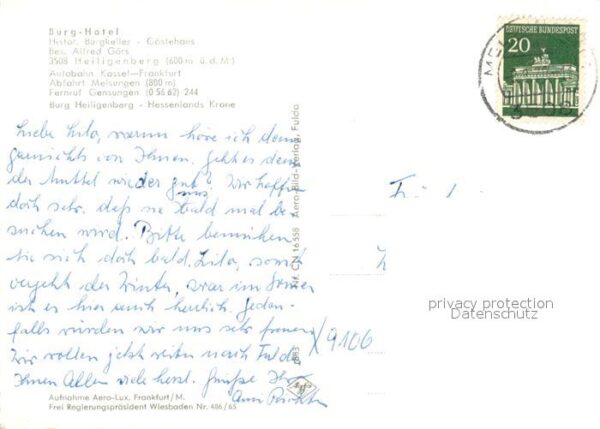 Burg-Hotel
Histor. Burgkeller - Gästehaus
Bes. Alfred Görs
3508 Heiligenberg (600 m ü.d.M)
Autobahn Kassel-Frankfurt
Abfahrt Melsungen (800 m)
Fernruf Gensungen (0 56 62) 244
Burg Heiligenberg - Hessenlands Krone
Liebe Lilo, warum höre ich denn
garnichts von Ihnen. Geht es denn
der Muttel wieder gut? Wir hoffen
doch sehr, daß sie uns bald mal be-
suchen wird. Bitte bemühen
Sie sich doch bald. Lilo, sonst
vergeht der Winter, zwar im
ist es hier auch herrlich. Jeden-
falls würden wir uns sehr freuen
Wir wollen jetzt weiter nach Fulda
Ihnen Allen viele herzl. Grüße Ihre
Aufnahme Aero-Lux, Frankfurt/M.
Frei Regierungspräsident Wiesbaden Nr. 486/65
Nr. CN 16558 Aero-Bild-Verlag, Fulda
DEUTSCHE BUNDESPOST
20
privacy protection
Datenschutz
9106